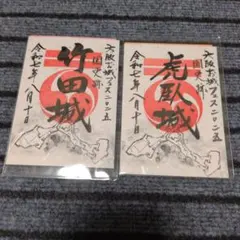 大阪お城フェス二〇二五
国史跡
竹田城
令和七年八月十日
大阪お城フェス二〇二五
国史跡
虎臥城
令和七年八月十日